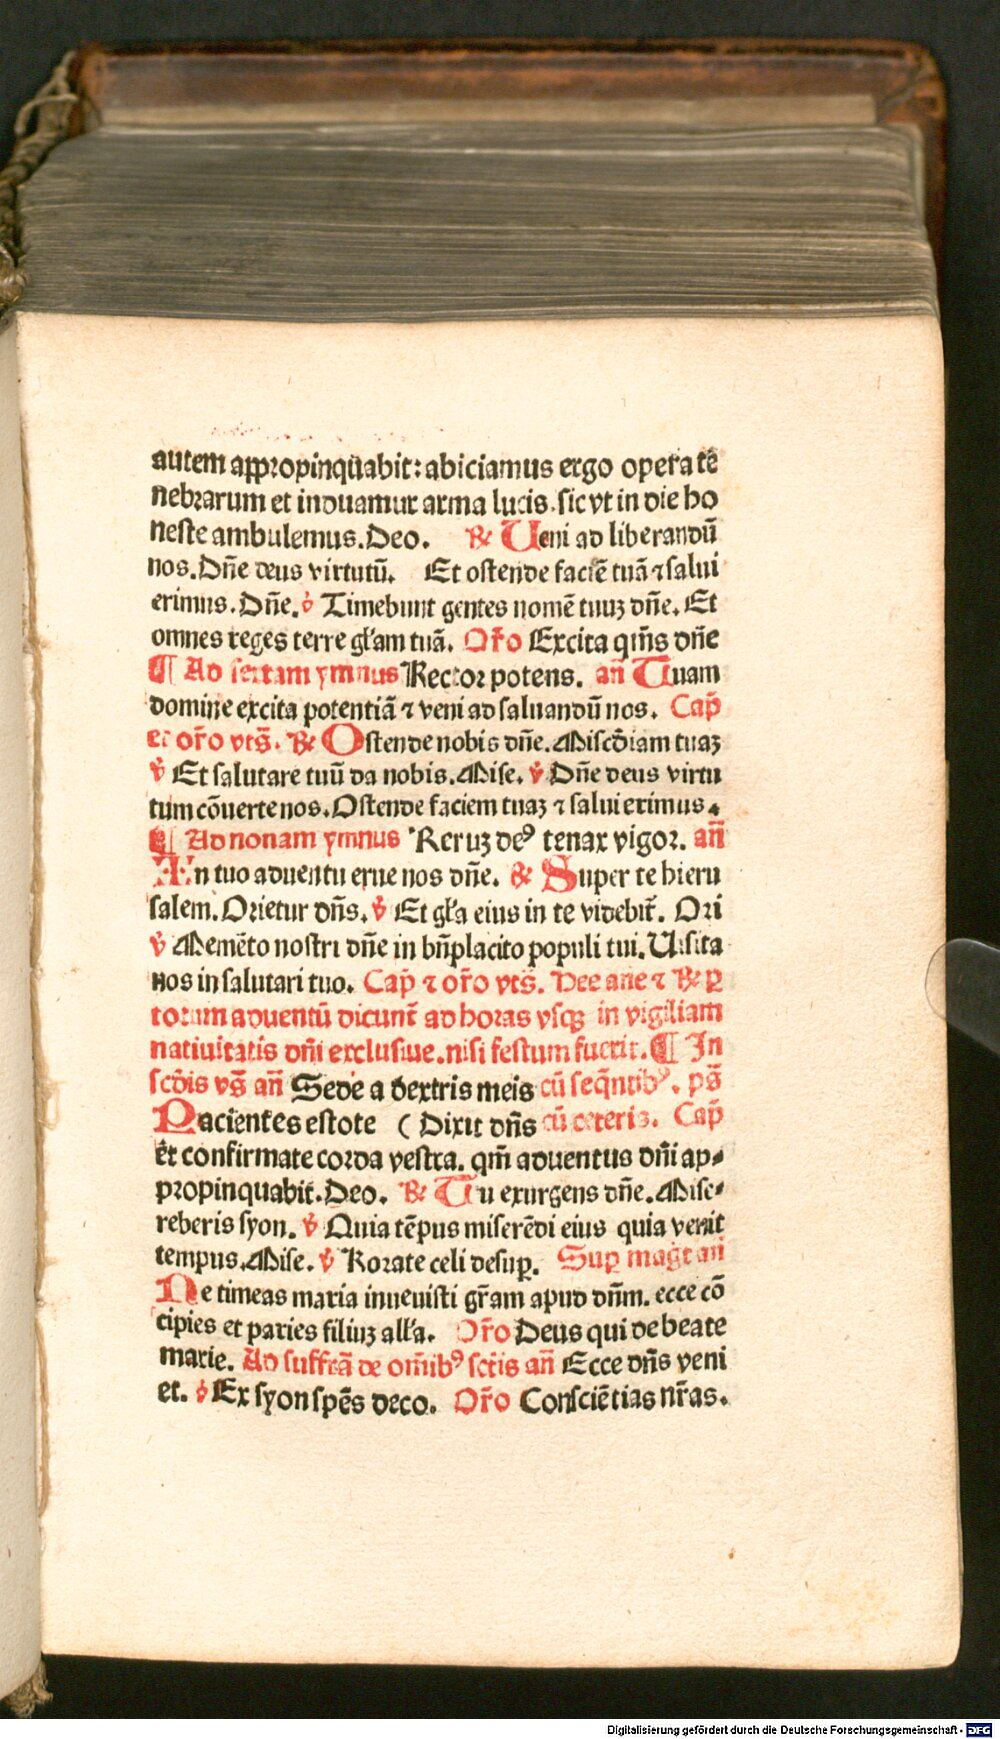 autem appropinquabit: abiciamus ergo opera tē
nebrarum et induamur arma lucis. sic vt in die ho
neste ambulemus. Deo. ℟ Ueni ad liberandū
nos. Dñe deus virtutū. Et ostende faciē tuā ⁊ salui
erimus. Dñe. ꝟ Timebunt gentes nomē tuuꝫ dñe. Et
omnes reges terre gl'am tuā. Or̄o Excita q̄m̄s dñe
¶ Ad sextam ymnus Rector potens. añ Tuam
domine excita potentiā ⁊ veni ad saluandū nos. Cap̄
et or̄o vts̄. ℟ Ostende nobis dñe. Misc̄diam tuaꝫ
ꝟ Et salutare tuū da nobis. Mise. ꝟ Dñe deus virtu
tum cōuerte nos. Ostende faciem tuaꝫ ⁊ salui erimus.
¶ Ad nonam ymnus Reruꝫ deꝰ tenax vigor. añ
In tuo aduentu erue nos dñe. ℟ Super te hieru
salem. Orietur dñs. ꝟ Et gl'a eius in te videbit̄. Ori
ꝟ Memēto nostri dñe in bn̄placito populi tui. Uisita
nos in salutari tuo. Cap̄ ⁊ or̄o vts̄. Hee añe ⁊ ℟ ꝑ
totum aduentū dicunt̄ ad horas vsqꝫ in vigiliam
natiuitatis dñi exclusiue. nisi festum fuerit. ¶ In
scd̄is vs̄ añ Sede a dextris meis cū seq̄ntibꝰ. ps̄
Pacientes estote ( Dixit dñs cū ceteris. Cap̄
et confirmate corda vestra. qm̄ aduentus dñi ap⸗
propinquabit. Deo. ℟ Tu exurgens dñe. Mise⸗
reberis syon. ꝟ Quia tēpus miserēdi eius quia venit
tempus. Mise. ꝟ Rorate celi desuꝑ. Suꝑ magt añ
Ne timeas maria inuenisti gr̄am apud dñm. ecce cō
cipies et paries filiuꝫ all'a. Or̄o Deus qui de beate
marie. Ad suffrā de om̄ibꝰ sctīs añ Ecce dñs veni
et. ꝟ Ex syon spēs deco. Or̄o Consciētias nr̄as.
Digitalisierung gefördert durch die Deutsche Forschungsgemeinschaft - DFG